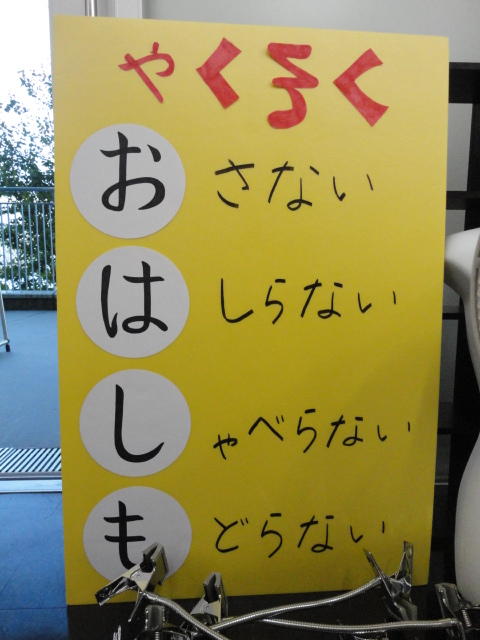 やくそく
おさない
はしらない
しゃべらない
もどらない